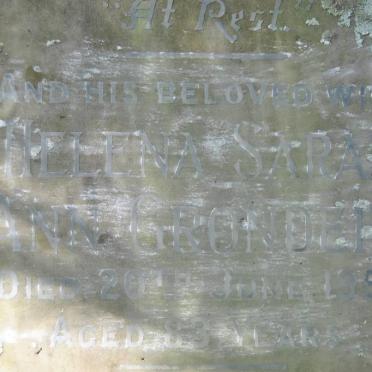 "At Rest."
AND HIS BELOVED
HELENA SARA
ANN
DIED 20TH JUNE
AGED 83 YEARS